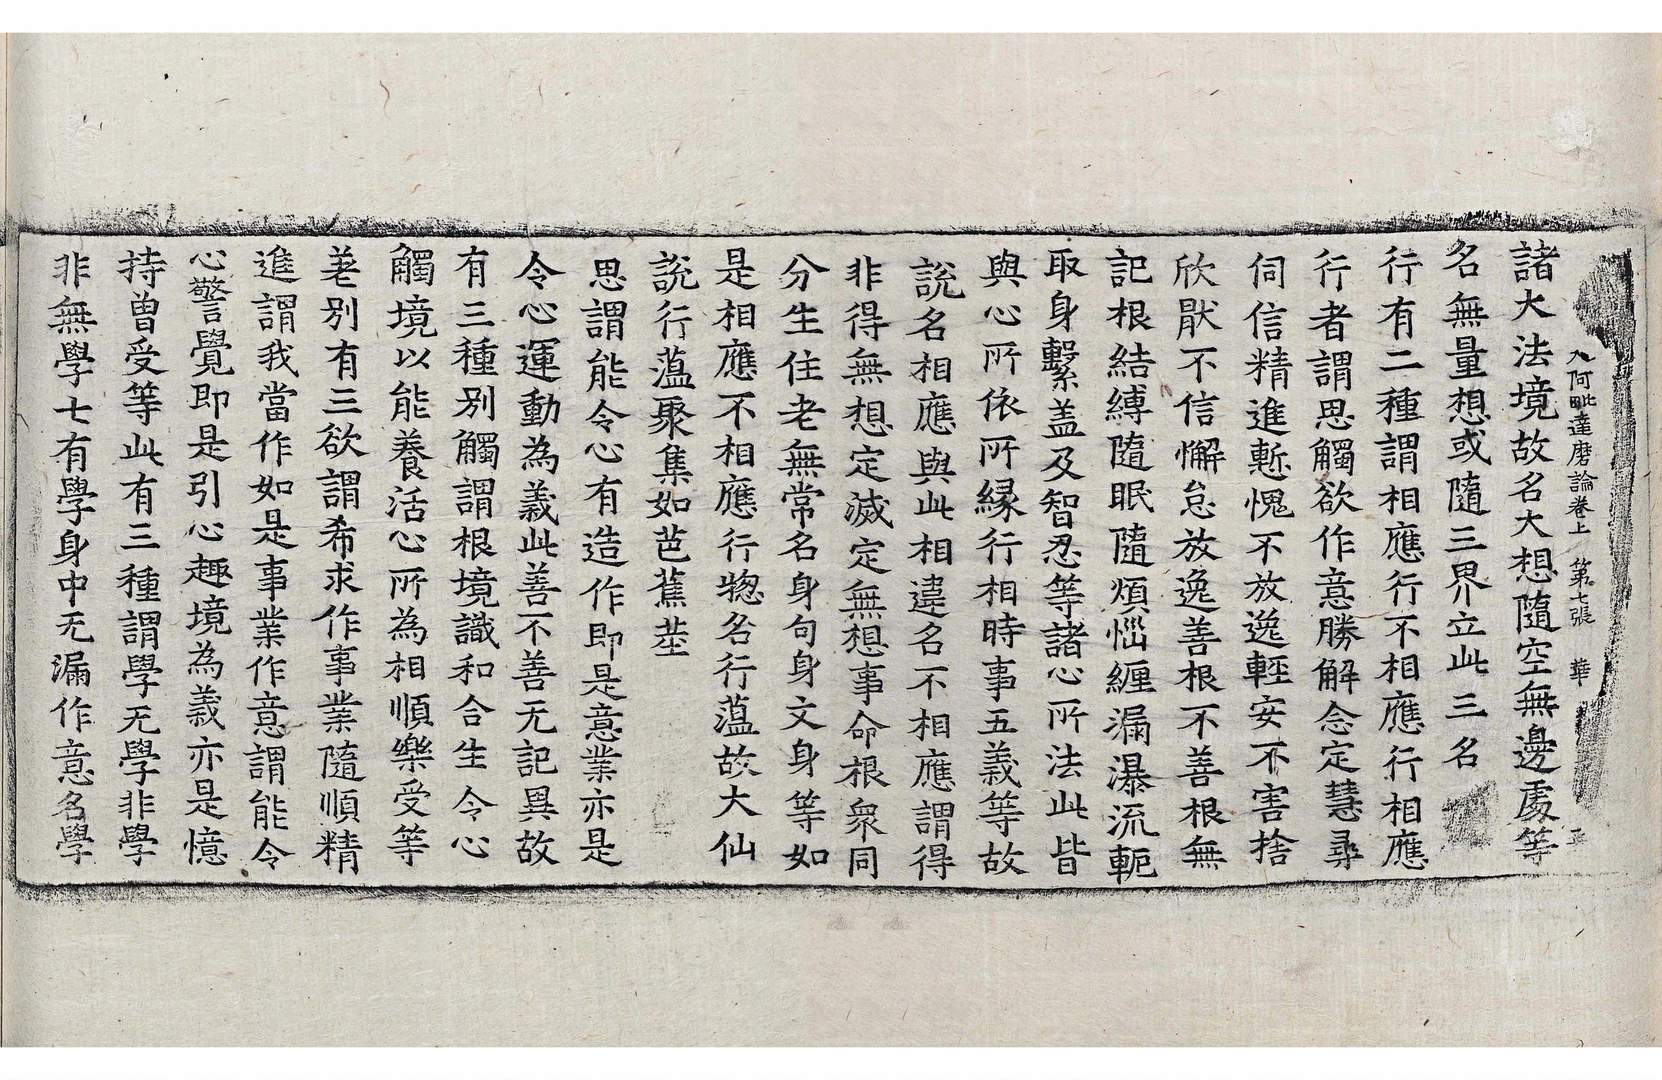 入阿毗達磨論卷上 第七張 華
諸大法境故名大想隨空無邊處等
名無量想或隨三界立此三名
行有二種謂相應行不相應行相應
行者謂思觸欲作意勝解念定慧尋
伺信精進慙愧不放逸輕安不害捨
欣猒不信懈怠放逸善根不善根無
記根結縛隨眠隨煩惱纏漏瀑流軛
取身繫盖及智忍等諸心所法此皆
與心所依所縁行相時事五義等故
說名相應與此相違名不相應謂得
非得無想定滅定無想事命根衆同
分生住老無常名身句身文身等如
是相應不相應行㹅名行蕰故大仙
說行蕰聚集如芭蕉莖
思謂能令心有造作即是意業亦是
令心運動為義此善不善无記異故
有三種別觸謂根境識和合生令心
觸境以能養活心所為相順樂受等
差別有三欲謂希求作事業隨順精
進謂我當作如是事業作意謂能令
心警覺即是引心趣境為義亦是憶
持曾受等此有三種謂學无學非學
非無學七有學身中无漏作意名學